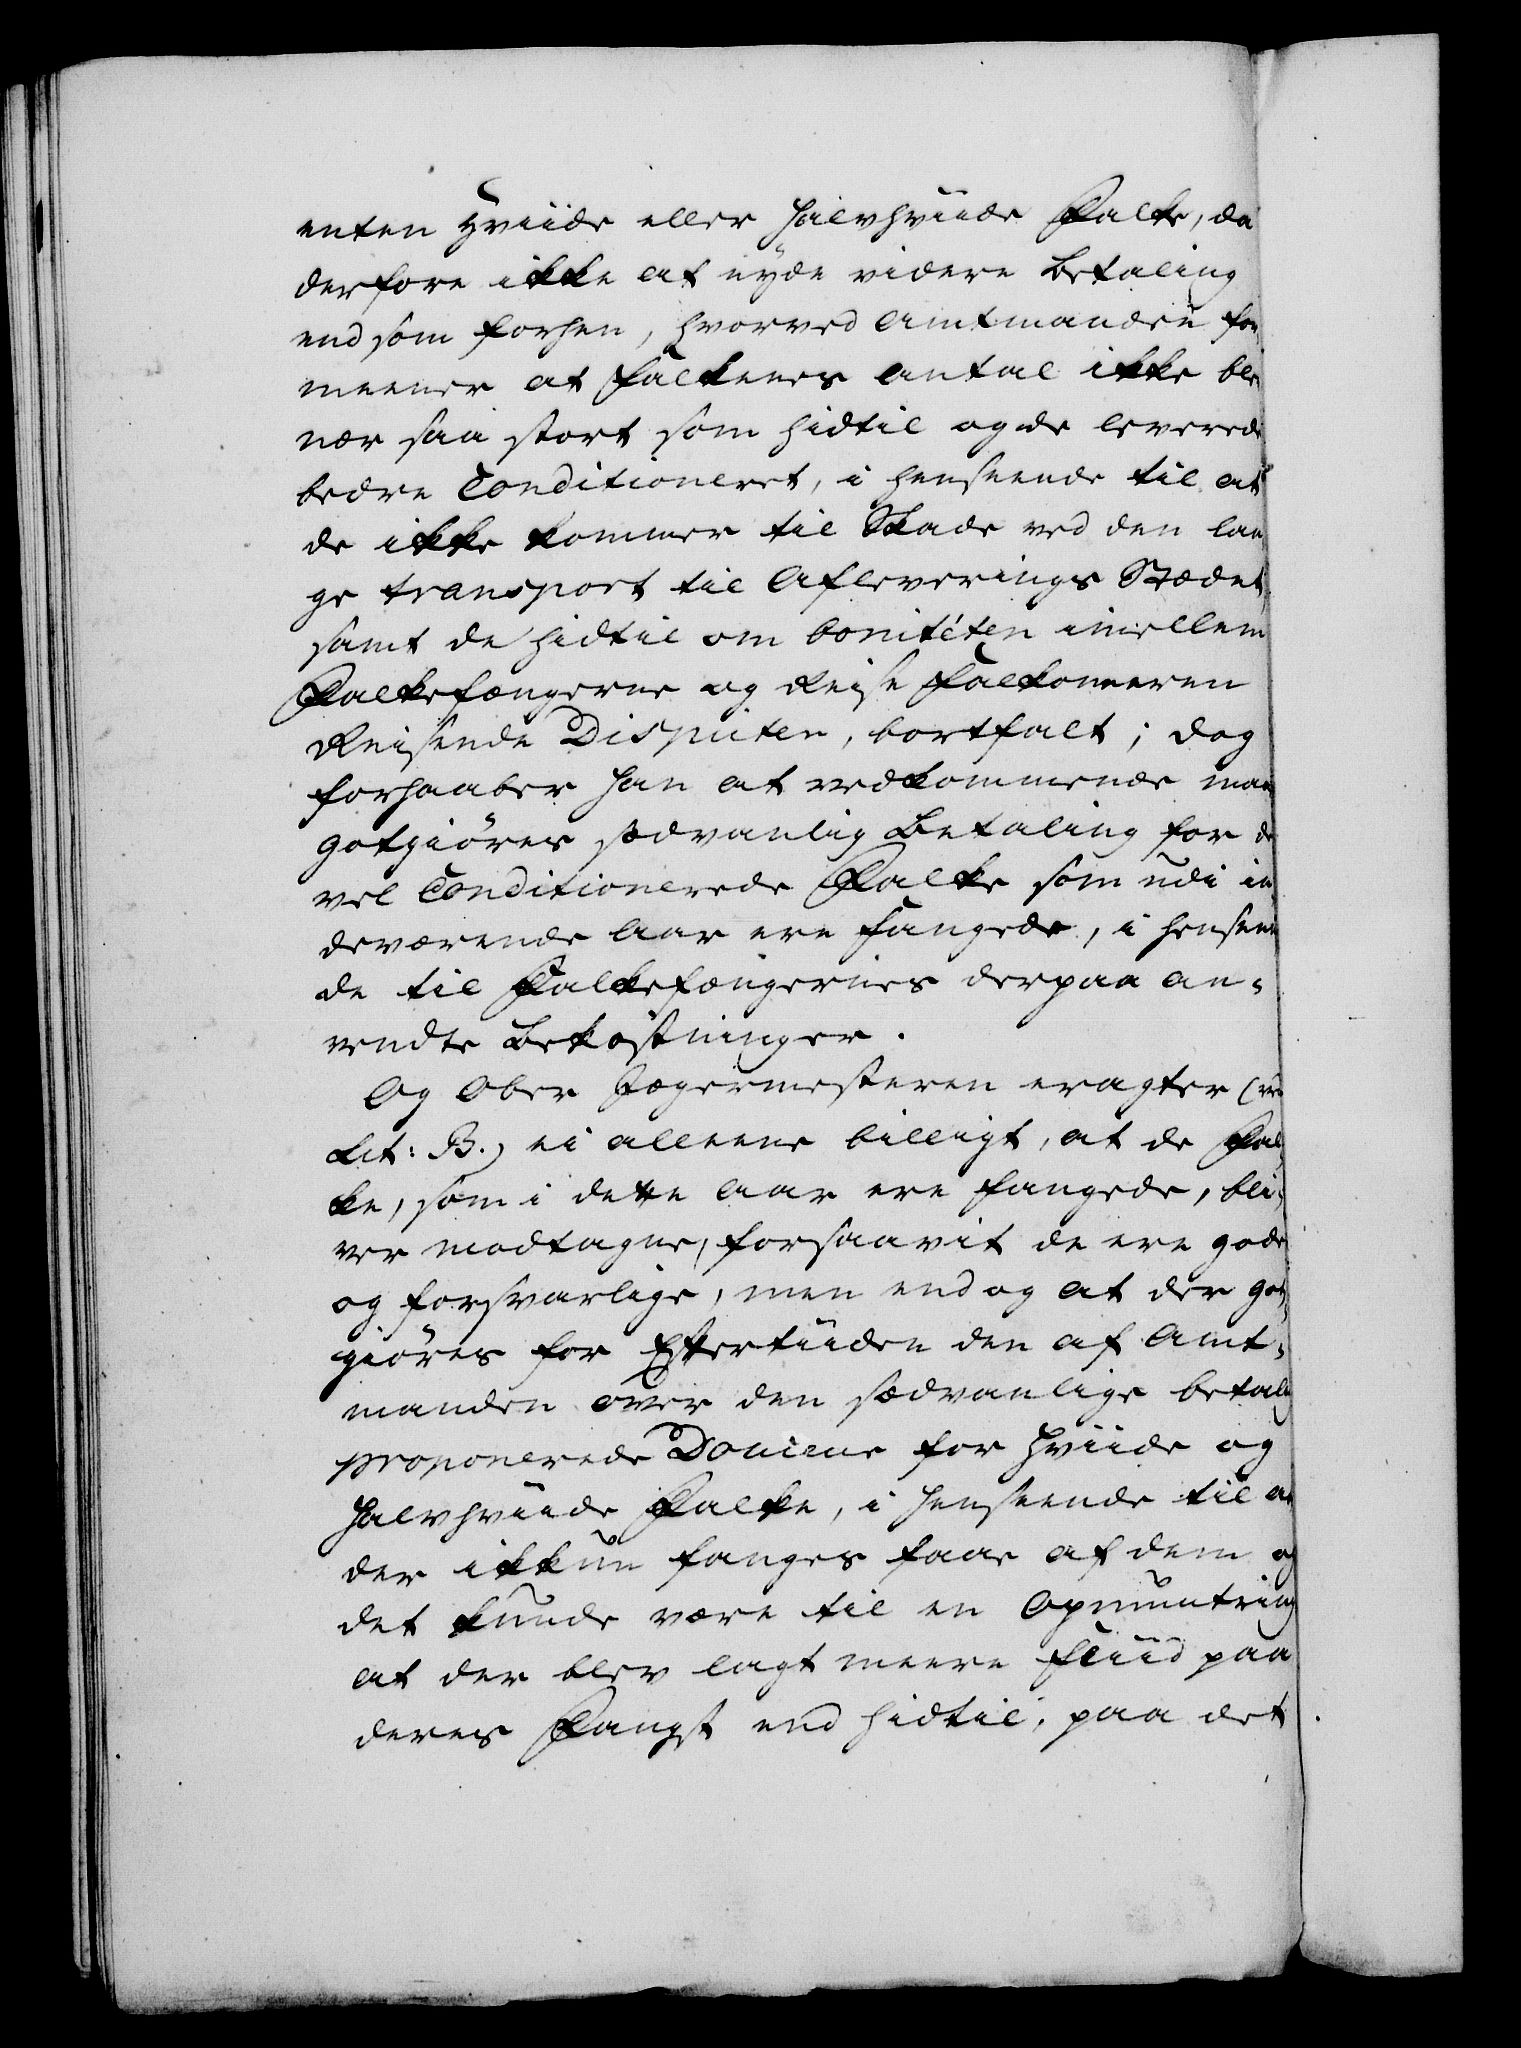 enten Hviide eller Halvhviide Falke, da
derfore ikke at nyde videre Betaling
end som forhen, hvorved Amtmanden for
meener at Falkenes Antal ikke ble
ver saa stort som hidtil og de leverede
bedre Conditioneret, i Henseende til at
de ikke kommer til Skade ved den lan
ge transport til Afleverings Stædet,
samt de hidtil om bonitéten imellem
Falkefængerne og Reise Falkoneeren
Reisende Disputer, bortfalt; dog
forhaaber han at vedkommende maa
gotgiøres sædvanlig Betaling for de
vel Conditionerede Falke som udi in
deværende Aar ere fangede, i Henseen
de til Falkefængernes derpaa an-
vendte Bekostninger.
Og Ober Jægermesteren eragter (ved
Lit: B.) ei alleene billigt, at de Fal
ke, som i dette Aar ere fangede, bli-
ver modtagne, forsaavit de ere gode
og forsvarlige, men endog at der got
giøres for Eftertiiden den af Amt-
manden over den sædvanlige betaling
proponerede Douceur for Hviide og
Halvhviide Falke, i Henseende til at
der ikkun fanges faae af dem og
det kunde være til en Opmuntring
at der blev lagt meere Fliid paa
deres Fangst end hidtil, paa det